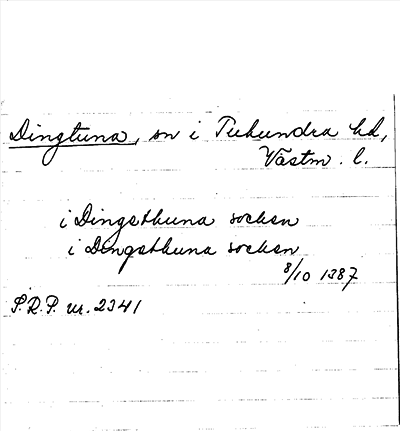 Dingtuna, sn i Tuhundra hd,
Västm. l.
i Dingsthuna sochen
i Dingsthuna sochen
8/10 1387
S.R.P. nr. 2341